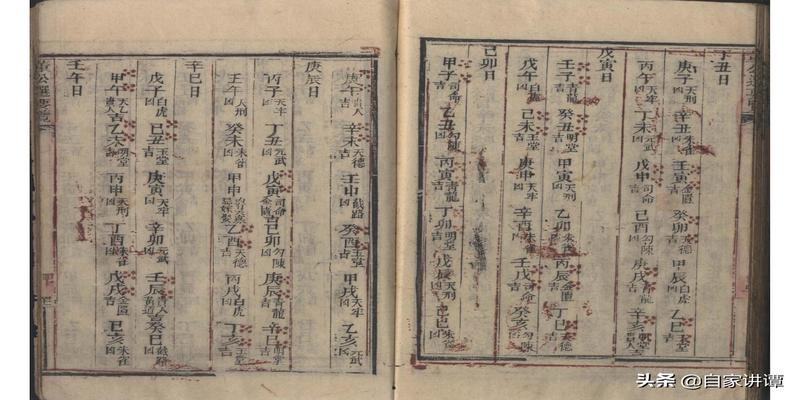 丁丑日
庚子天刑凶 辛丑朱雀凶 壬寅金匱吉 癸卯天德吉 甲辰白虎凶 乙巳玉堂吉
丙午天牢凶 丁未元武凶 戊申司命吉 己酉勾陳凶 庚戌青龍吉 辛亥明堂貴人
戊寅日
壬子青龍吉 癸丑明堂吉 甲寅天刑凶 乙卯朱雀凶 丙辰金匱吉 丁巳天德吉
戊午白虎凶 己未玉堂吉 庚申天牢凶 辛酉元武凶 壬戌司命吉 癸亥勾陳凶
己卯日
甲子司命吉 乙丑勾陳凶 丙寅青龍吉 丁卯明堂吉 戊辰天刑凶 己巳朱雀凶
庚午貴人吉 辛未天德吉 壬申截路凶 癸酉玉堂吉 甲戌天牢凶 乙亥元武凶
庚辰日
丙子天牢凶 丁丑元武凶 戊寅司命金匱吉 己卯勾陳凶 庚辰青龍吉 辛巳明堂吉
壬午天刑凶 癸未朱雀凶 甲申 乙酉天德吉 丙戌白虎凶 丁亥玉堂吉
辛巳日
戊子白虎凶 己丑玉堂吉 庚寅天牢凶 辛卯元武凶 壬辰貴人黃道吉 癸巳截路凶
甲午天乙貴人 乙未明堂吉 丙申天刑凶 丁酉朱雀凶 戊戌金匱吉 己亥朱雀
壬午日
董公選要覽
头条 @自家讲谭